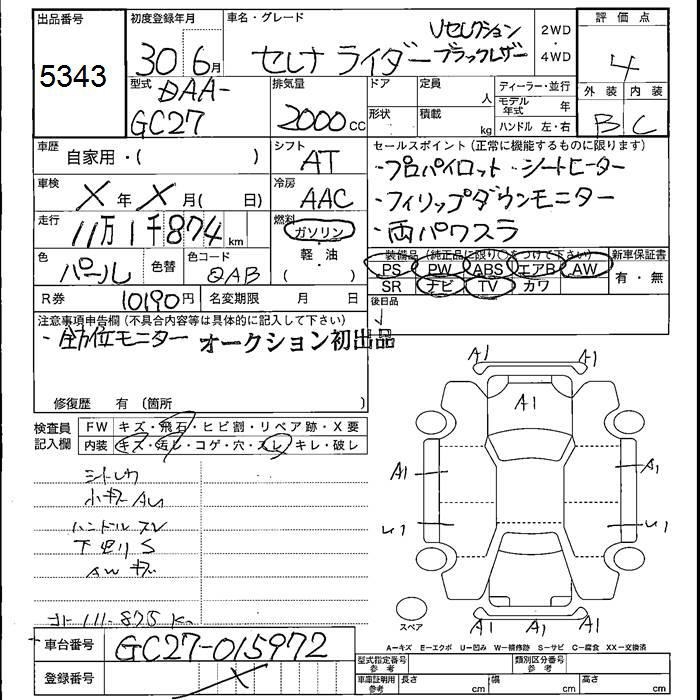 出品番号 初度登録年月 車名・グレード 評価点
5343 30 6月 セレナ ライダー Vセレクション ブラックレザー 2WD・4WD 4
外装 内装
B C
型式 DAA-GC27 排気量 2000cc ドア 定員 人 ディーラー・並行
形状 積載 kg モデル年式 年
ハンドル 左・右
車歴 自家用・( ) シフト AT セールスポイント(正常に機能するものに限ります)
・プロパイロット・シートヒーター
車検 X年X月( 日) 冷房 AAC ・フィリップダウンモニター
走行 11万1千874km 燃料 ガソリン・軽・油 ・両パワスラ
色 パール 色替 色コード QAB
装備品(純正品に限り〇をつけて下さい) 新車保証書
PS PW ABS エアB AW 有・無
SR ナビ TV カワ
R券 10190円 名変期限 月 日 後日品
注意事項申告欄(不具合内容等は具体的に記入して下さい)
・全方位モニター オークション初出品
修復歴 有(箇所 )
検査員記入欄 FW キズ・飛石・ヒビ割・リペア跡・X要
内装 キズ・汚レ・コゲ・穴・スレ・キレ・破レ
小キズ
ハンドル スレ
下回り S
AW キズ
A1 A1
A1
A1 A1
U1 U1
A1 A1
スペア
A-キズ E-エクボ U-凹み W-補修跡 S-サビ C-腐食 XX-交換済
車台番号 GC27-015972
型式指定番号 参考 類別区分番号 参考
登録番号 X
車庫証明用 参考 長さ cm 幅 cm 高さ cm